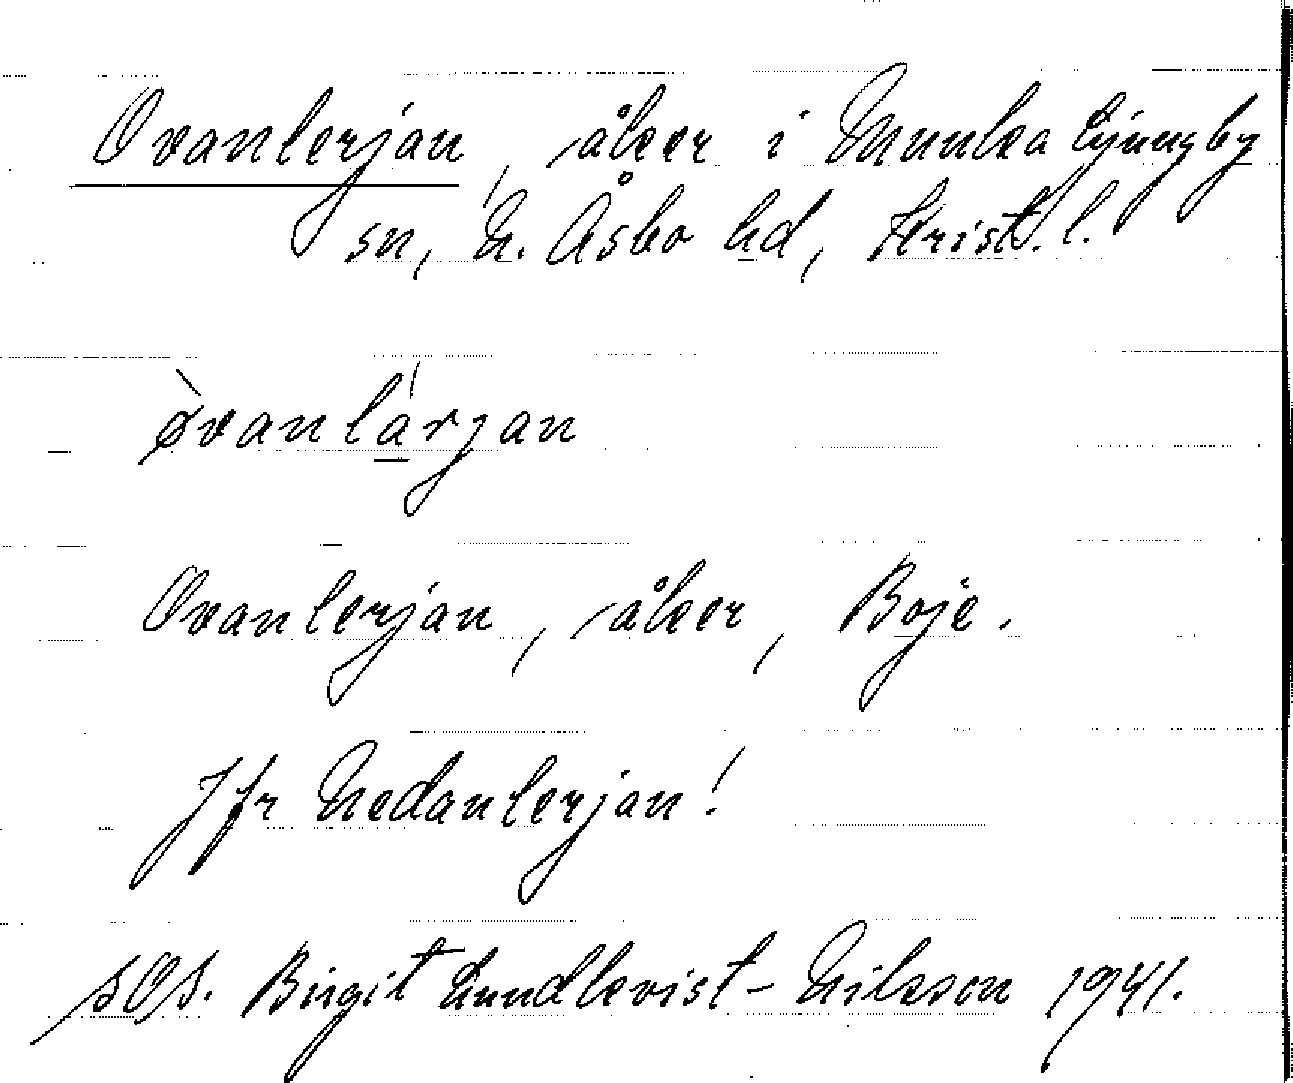 Ovanlerjan, åker i Munka Ljungby
sn, N. Åsbo hd, Krist. l.
òvanlárjan
Ovanlerjan, åker, Boje.
Jfr Nedanlerjan!
SOS. Birgit Lundkvist-Nilsson 1941.